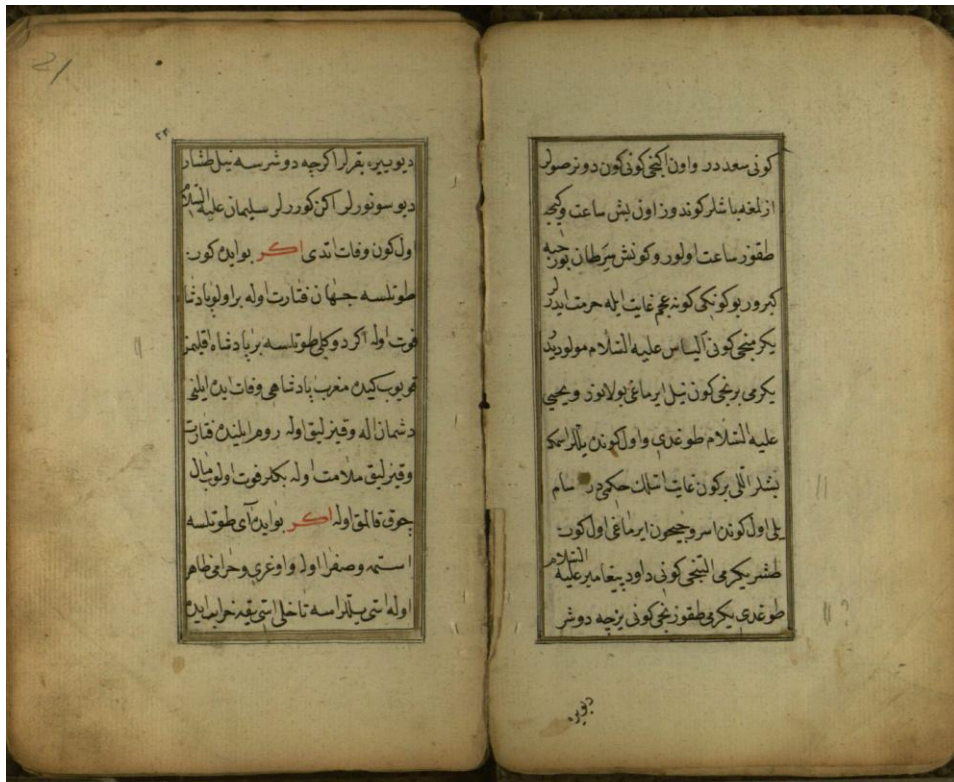 كونی سعددر و اون ایكنجی كونی كون دونر صولر
ازلمغه باشلر كوندوز اون بش ساعت و كیجه
طقوز ساعت اولور و كونش سرطان بورجینه
كیرور بو كونكی كونه عجم غایت ایله حرمت ایدرلر
یكرمنجی كونی الیاس علیه السلام مولودیدر
یكرمی برنجی كون نیل ایرماغی بولانور و یحیی
علیه السلام طوغدی و اول كوندن یللر اسمكه
بشلر اللی بر كون غایت اسلك حكمی در سام
یلی اول كوندن اسر و جیحون ایرماغی اول كون
طشر یكرمی التنجی كونی داود پیغامبر علیه السلام
طوغدی یكرمی طقوزنجی كونی یزجه دوشر
دیو یره
21
۲۴
دیو ییره بقرلر اكر چه دوشرسه نیل طشار
دیو سونورلر اكن كوررلر سلیمان علیه السلام
اول كون وفات اتدی اكر بو ایده كون
طوتلسه جهان فتارت اوله بر اولو پادشا
فوت اوله اكر دوكلی طوتلسه بر پادشاه اقلیمن
قویوب كیده مغرب پادشاهی وفات ایده ایلنی
دشمان اله و قیزلیق اوله روم ایلینده فتارت
و قیزلیق ملامت اوله بكلر فوت اولوب مال
چوق قالمق اوله اكر بو ایده آی طوتلسه
استمه و صفرا اوله و اوغری و حرامی ظاهر
اوله اسی یللر اسه تا خلی اسی یقه خراب ایده